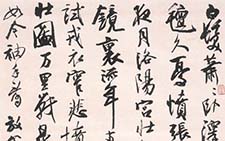 白髮蕭蕭臥澤
氊久憂憤張
夜月洛陽宮壯
鏡裏流年
試戎衣窄悲憤
壯圖万里戰皋
如今袖手看 放